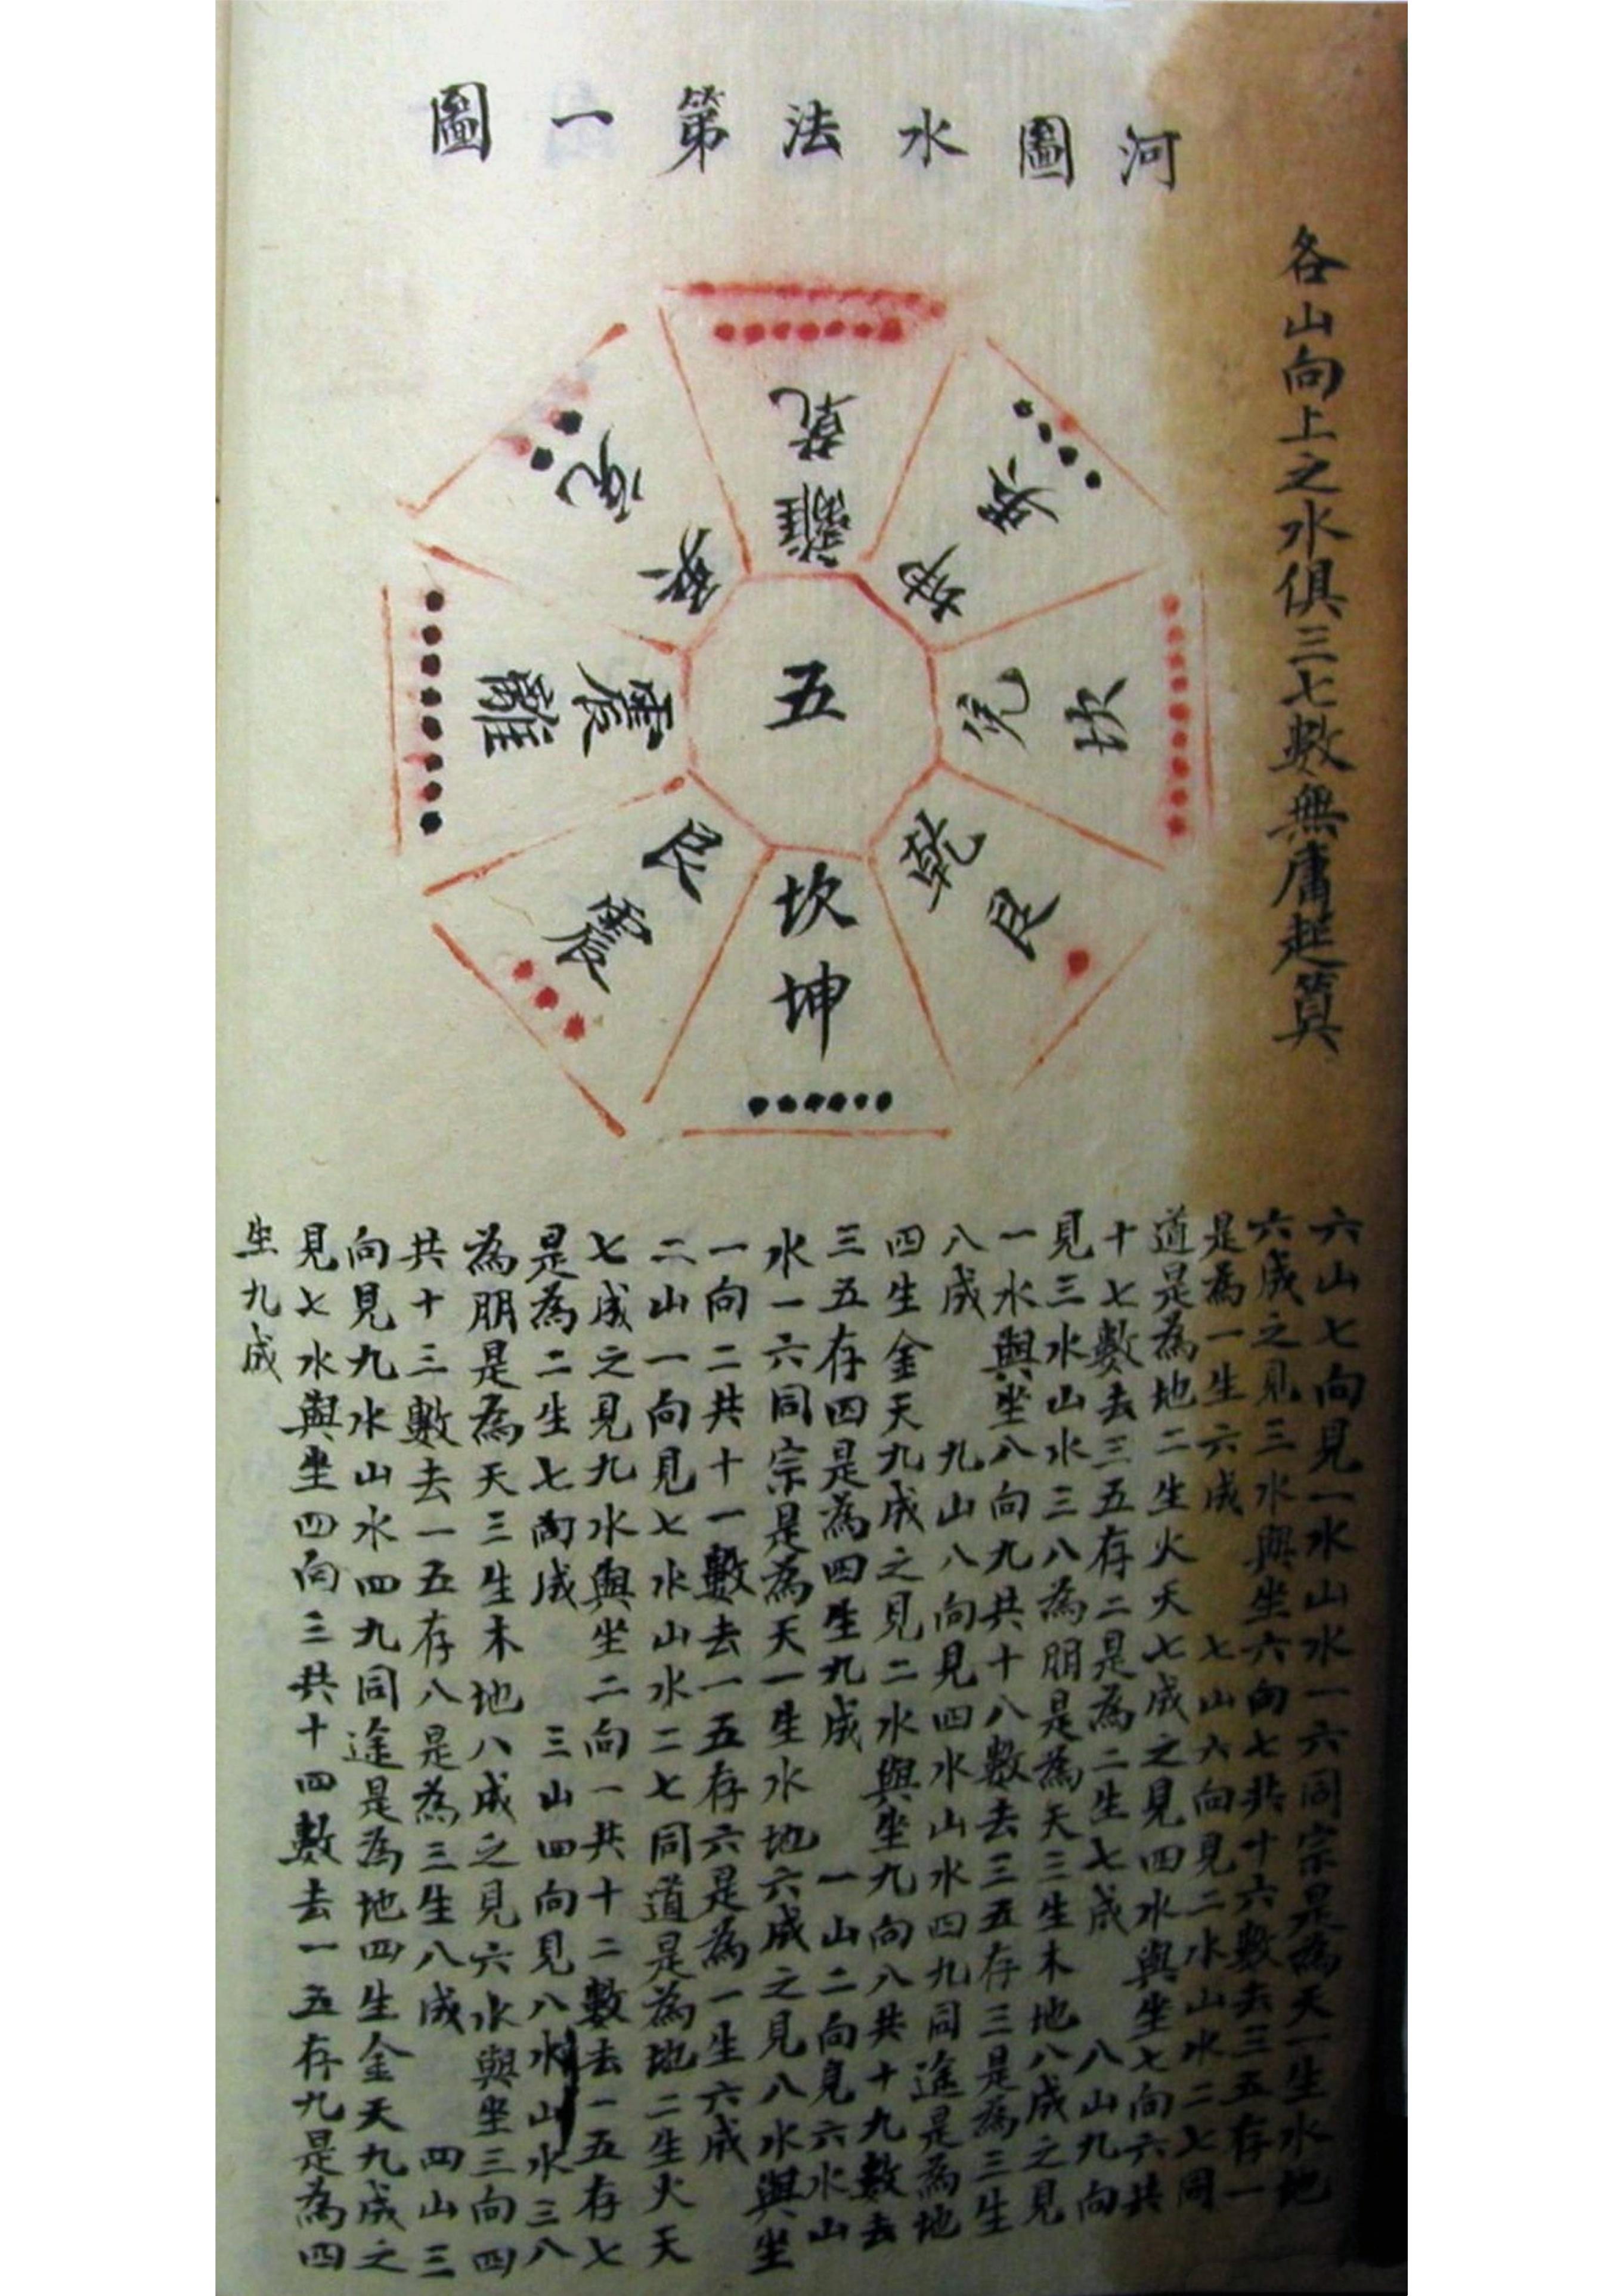 河圖水法第一圖
各山向上之水俱三七數無庸起算
乾離
巽坤
坎兌
乾艮
坎坤
艮震
震離
兌巽
五
六山七向見一水山水一六同宗是為天一生水地
六成之見三水與坐六向七共十六數去三五存一
是為一生六成　七山六向見二水山水二七同
道是為地二生火天七成之見四水與坐七向六共
十七數去三五存二是為二生七成　八山九向
見三水山水三八為朋是為天三生木地八成之見
一水與坐八向九共十八數去三五存三是為三生
八成　九山八向見四水山水四九同途是為地
四生金天九成之見二水與坐九向八共十九數去
三五存四是為四生九成　一山二向見六水山
水一六同宗是為天一生水地六成之見八水與坐
一向二共十一數去一五存六是為一生六成
二山一向見七水山水二七同道是為地二生火天
七成之見九水與坐二向一共十二數去一五存七
是為二生七向成　三山四向見八水山水三八
為朋是為天三生木地八成之見六水與坐三向四
共十三數去一五存八是為三生八成　四山三
向見九水山水四九同途是為地四生金天九成之
見七水與坐四向三共十四數去一五存九是為四
生九成